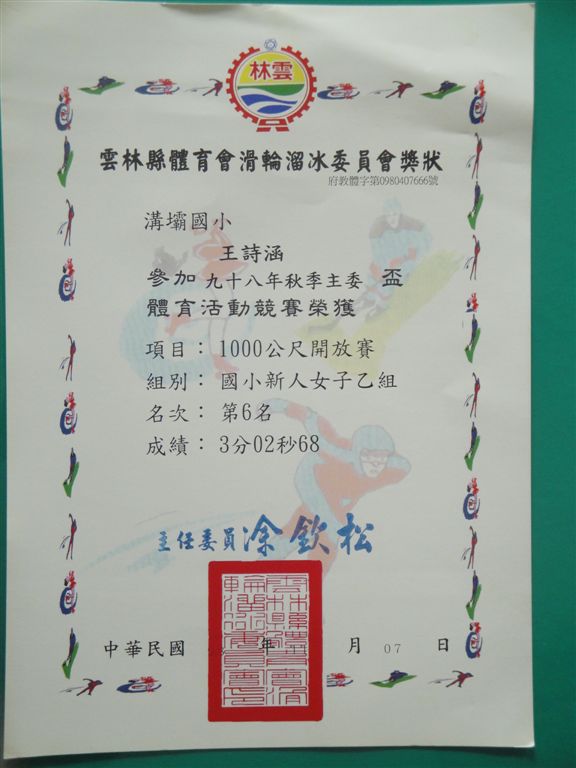 林雲
雲林縣體育會滑輪溜冰委員會獎狀
府教體字第0980407666號
溝壩國小
王詩涵
參加 九十八年秋季主委 盃
體育活動競賽榮獲
項目： 1000公尺開放賽
組別： 國小新人女子乙組
名次： 第6名
成績： 3分02秒68
主任委員 涂欽松
中華民國 年 月 07 日